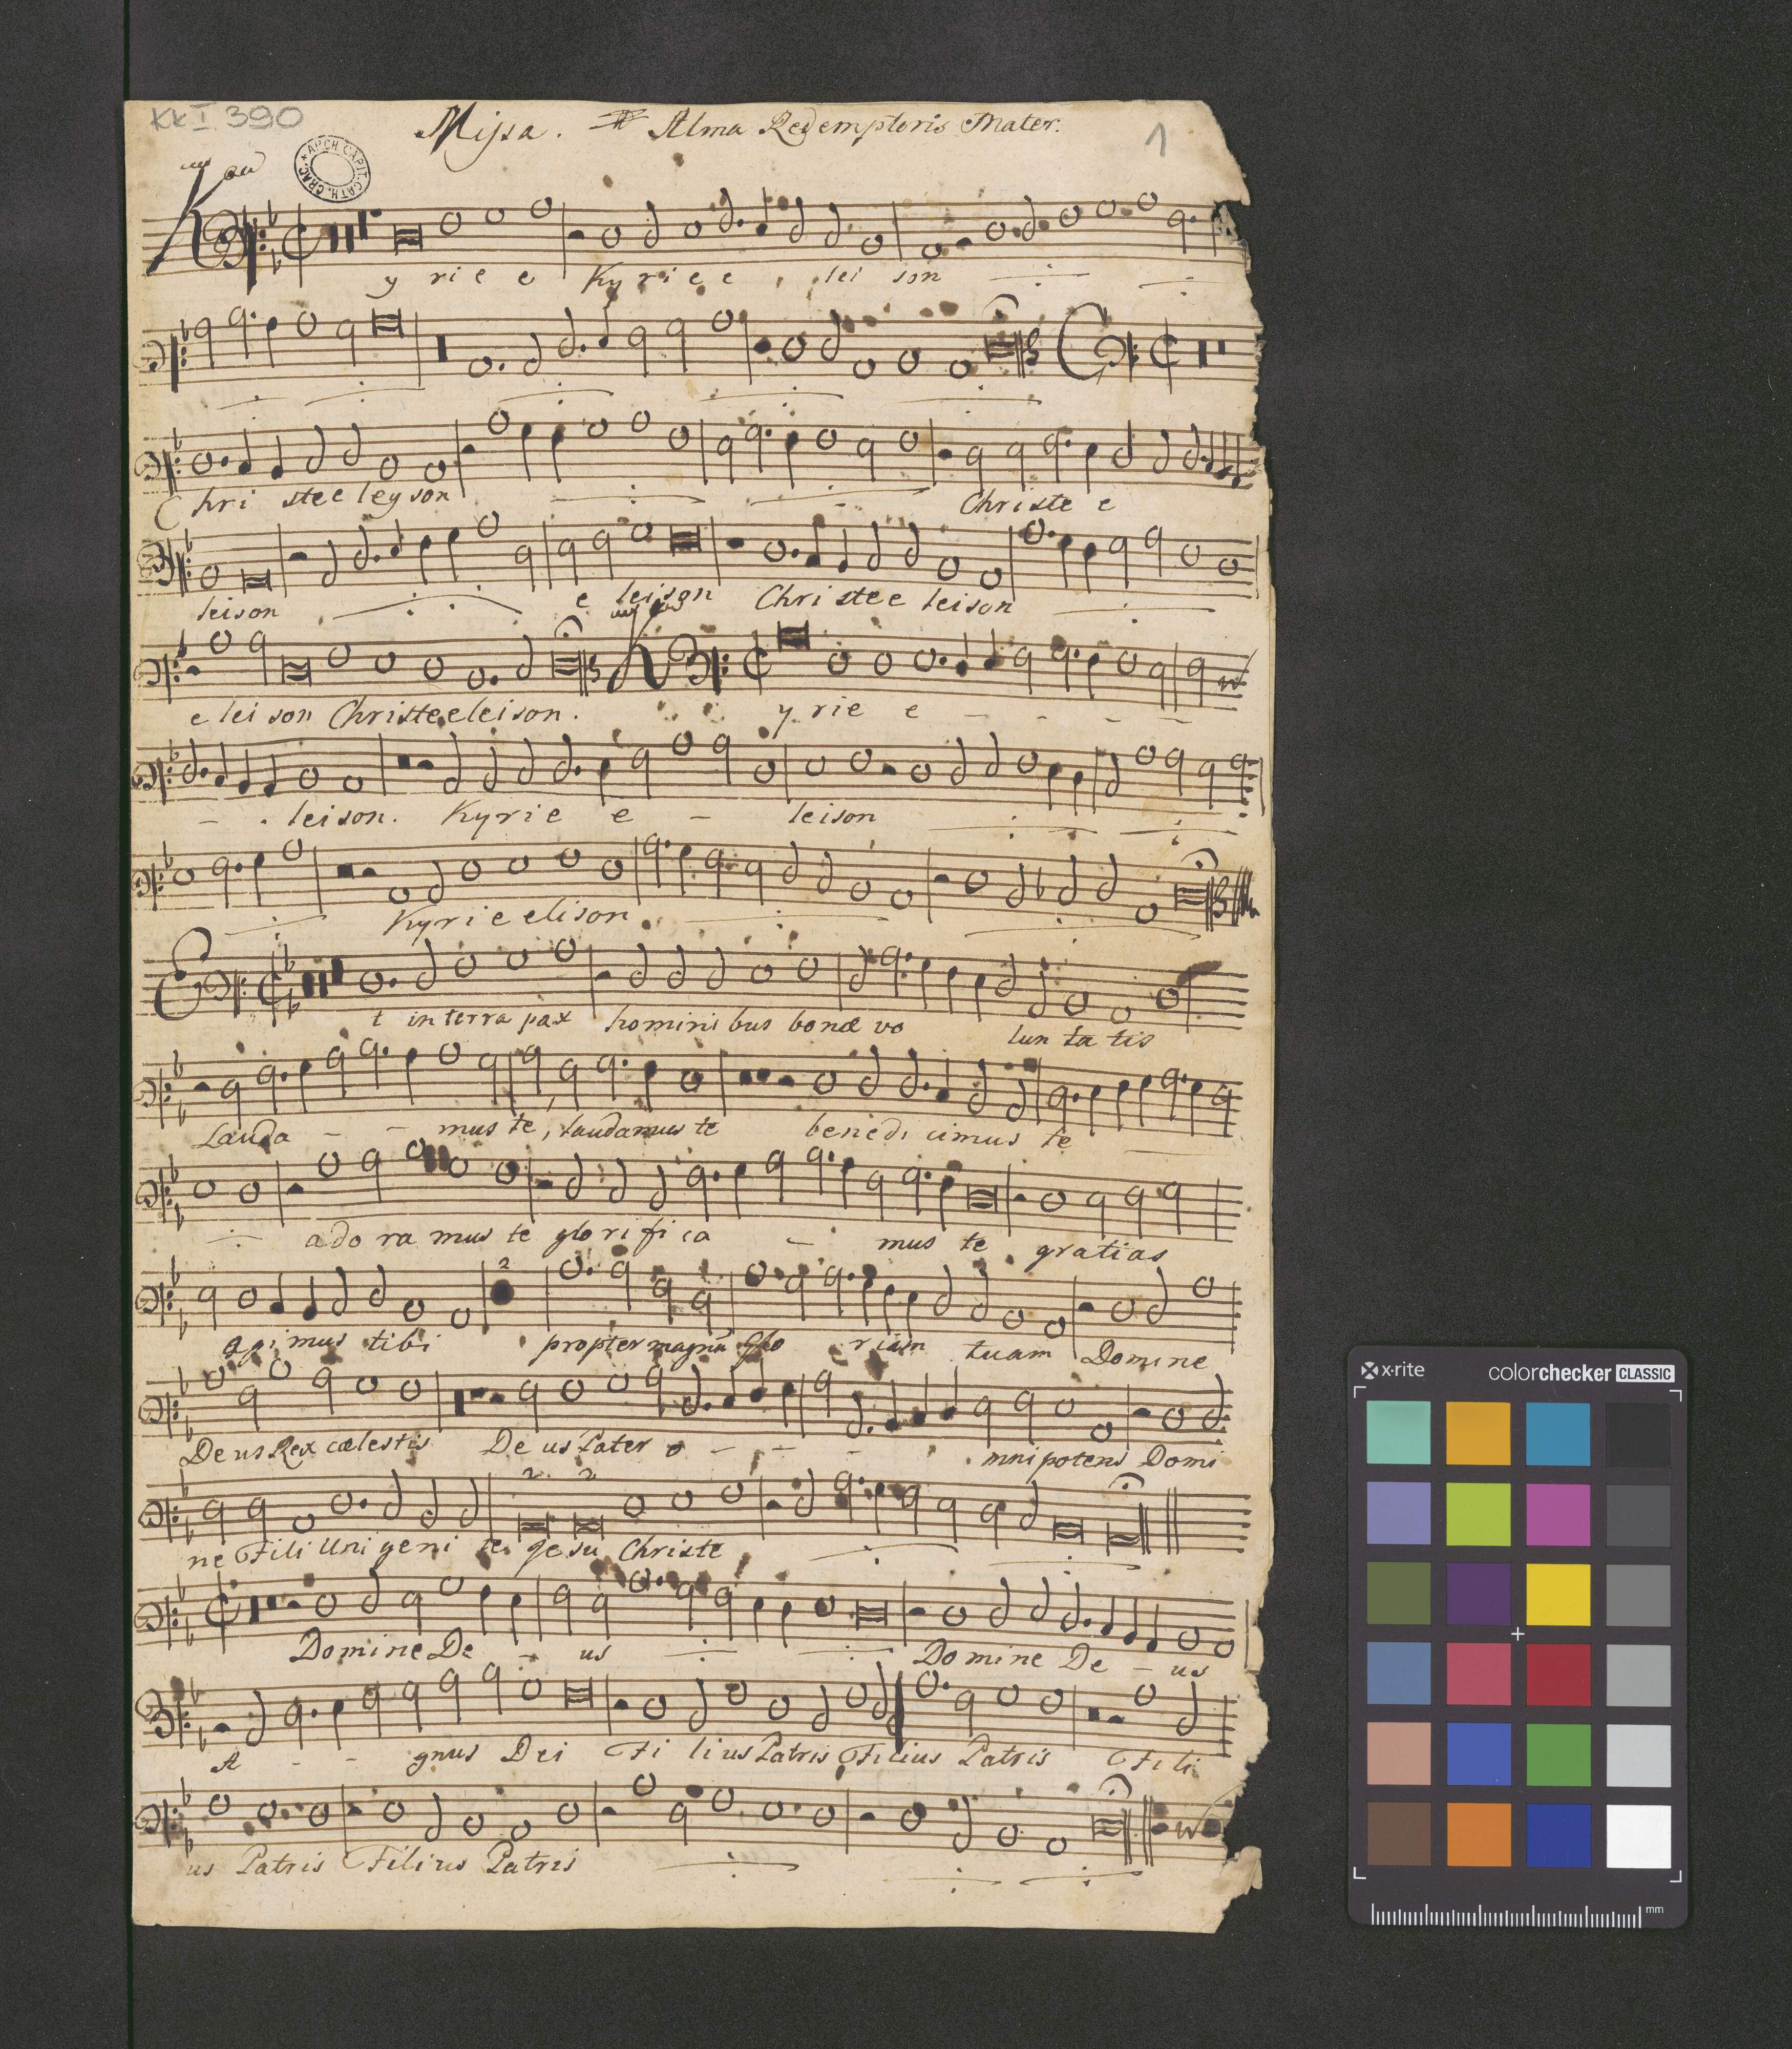 KK I 390
Missa. Alma Redemptoris Mater.
1
ARCH. CAPIT. CATH. CRAC.
Kyrie e Kyrie e lei son
Chri stee leyson Christe e
leison e leison Christee leison
e lei son Christeeleison. Kyrie e - - - -
- . leison. Kyrie e - leison
Kyrie elison
Et in terra pax hominibus bonæ vo lun ta tis
Lauda - - mus te, laudamus te benedicimus te
adoramus te glorifica - mus te gratias
agimus tibi propter magnã glo riam tuam Domine
2
Deus Rex cælestis Deus Pater o - - - mnipotens Domi
2 2
ne Fili Unigeni te Jesu Christe
Domine De - us Domine De - us
A - - gnus Dei Fi lius Patris Filius Patris Fili
us Patris Filius Patris
x-rite
colorchecker CLASSIC
mm